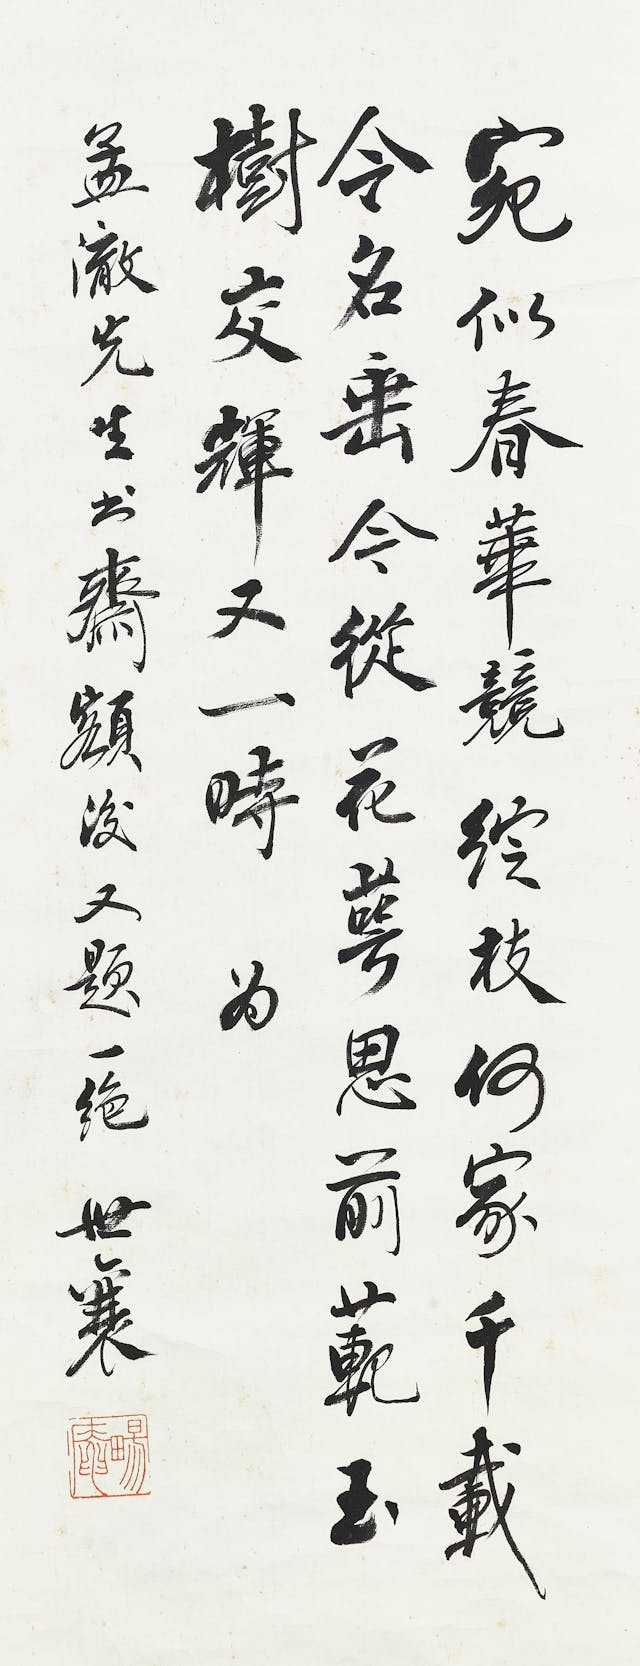 宛似春華競綻枝何家千載
令名垂今從花萼思前範玉
樹交輝又一時 为
孟澈先生书齋額後又題一绝 世襄
暢安